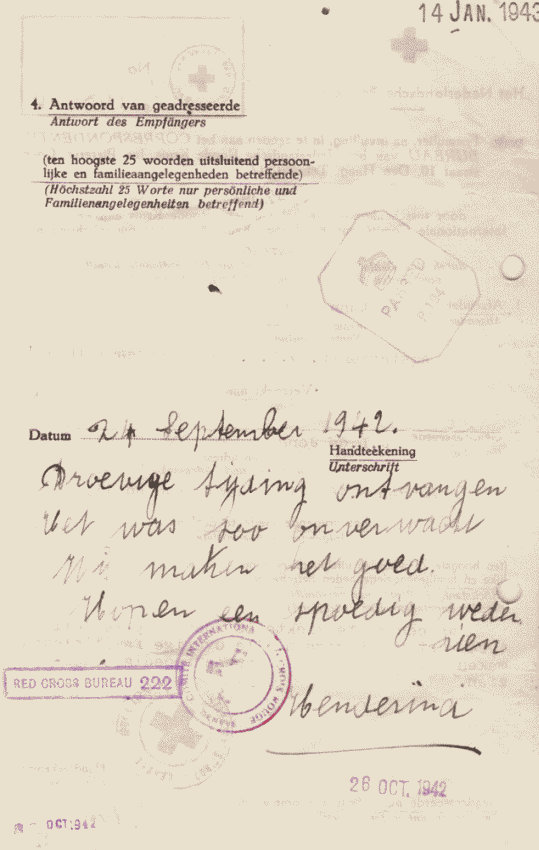 14 JAN. 1943
4. Antwoord van geadresseerde
Antwort des Empfängers
(ten hoogste 25 woorden uitsluitend persoon-
lijke en familieaangelegenheden betreffende)
(Höchstzahl 25 Worte nur persönliche und
Familienangelegenheiten betreffend)
PASSED
P.
Datum 24 September 1942.
Handteekening
Unterschrift
Droevige tijding ontvangen
Het was zoo onverwacht
Wij maken het goed.
Hopen een spoedig weder
zien
COMITÉ INTERNATIONAL CROIX ROUGE
RED CROSS BUREAU 222
Henderina
26 OCT. 1942
OCT. 1942